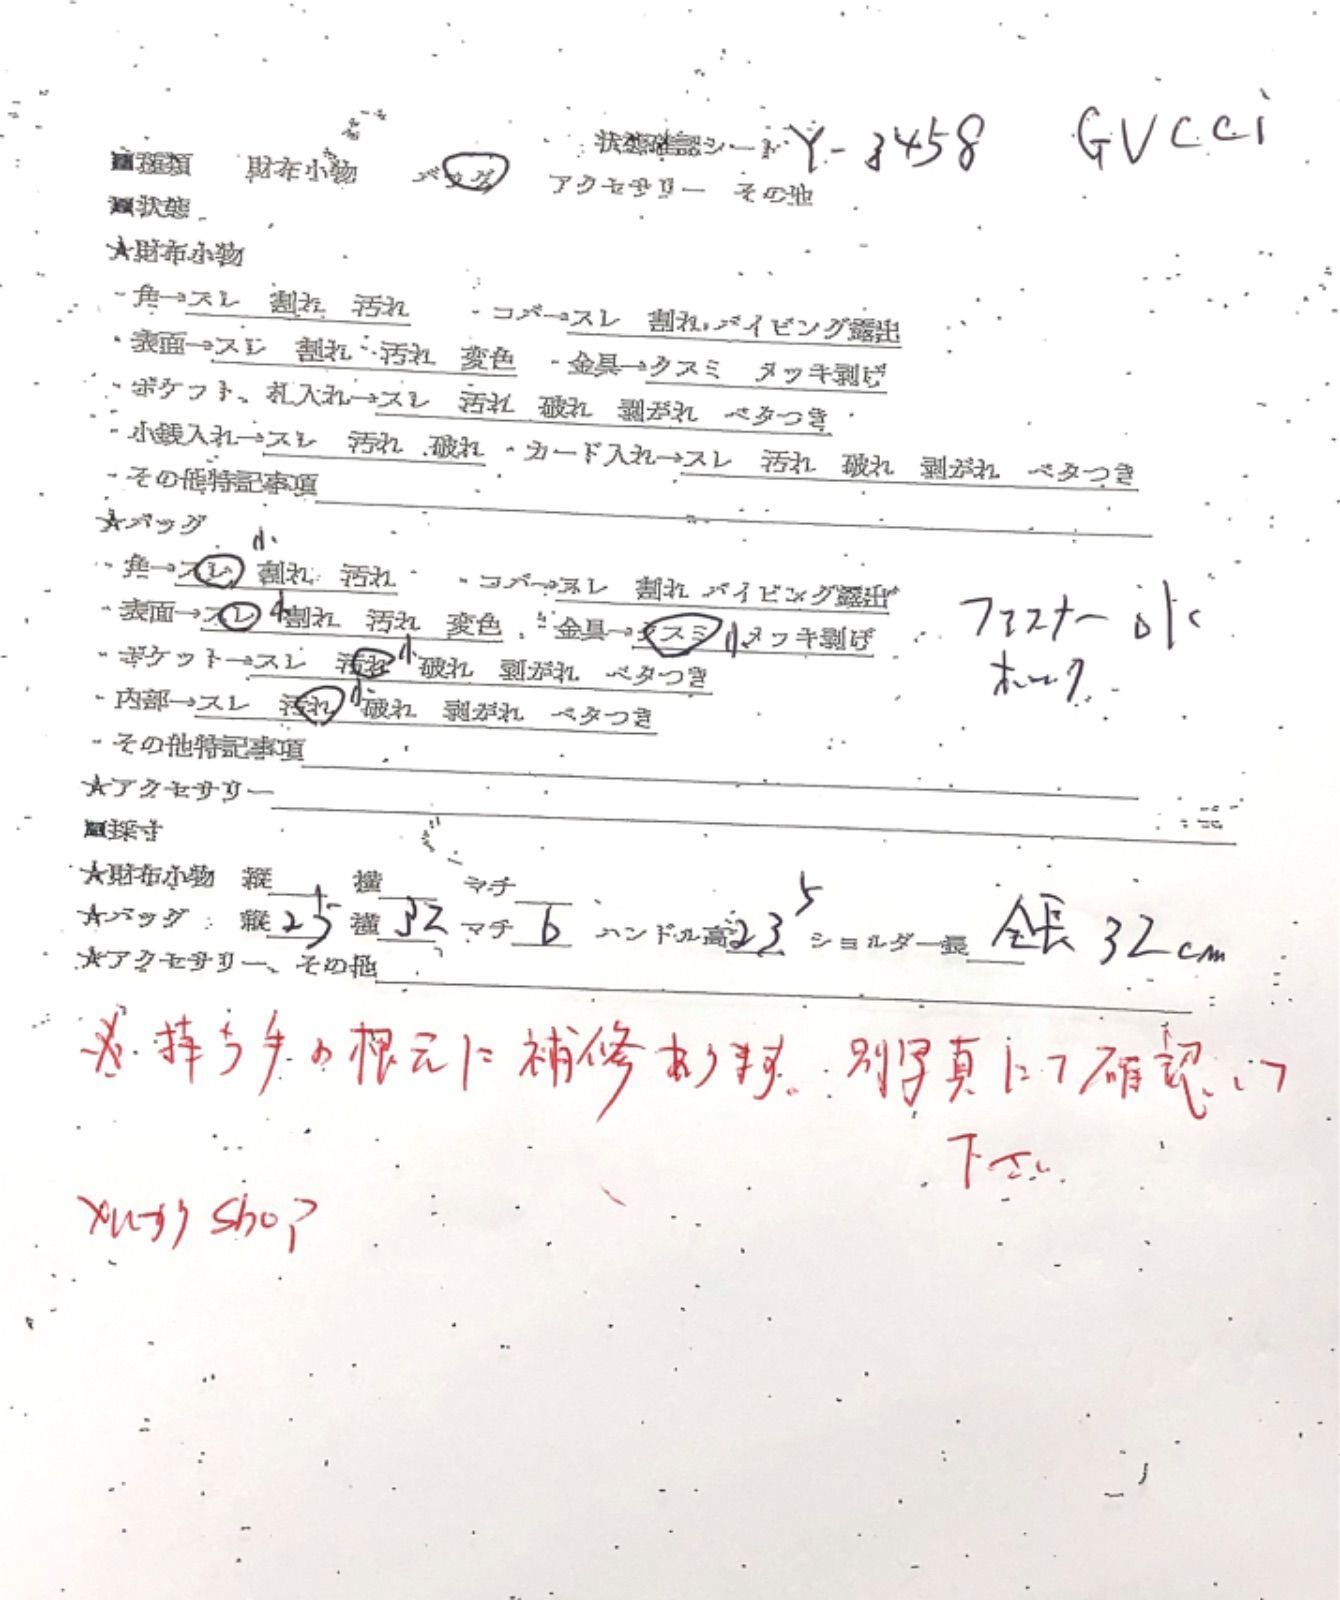 状態確認シート Y-3458 GUCCI
■種類 財布小物 バッグ アクセサリー その他
■状態
★財布小物
・角→スレ 割れ 汚れ ・コバ→スレ 割れ パイピング露出
・表面→スレ 割れ 汚れ 変色 ・金具→クスミ メッキ剥げ
・ポケット、札入れ→スレ 汚れ 破れ 剥がれ ベタつき
・小銭入れ→スレ 汚れ 破れ ・カード入れ→スレ 汚れ 破れ 剥がれ ベタつき
・その他特記事項
★バッグ
小
・角→スレ 割れ 汚れ ・コバ→スレ 割れ パイピング露出
・表面→スレ 小 割れ 汚れ 変色 ・金具→クスミ 小 メッキ剥げ ファスナー o/c
・ポケット→スレ 汚れ 小 破れ 剥がれ ベタつき ホック
・内部→スレ 汚れ 小 破れ 剥がれ ベタつき
・その他特記事項
★アクセサリー
■採寸
★財布小物 縦 横 マチ
★バッグ 縦 25 横 32 マチ 6 ハンドル高 23 5 ショルダー長 全長 32cm
★アクセサリー、その他
※持ち手の根元に補修あります。別写真にて確認して
下さい
shop